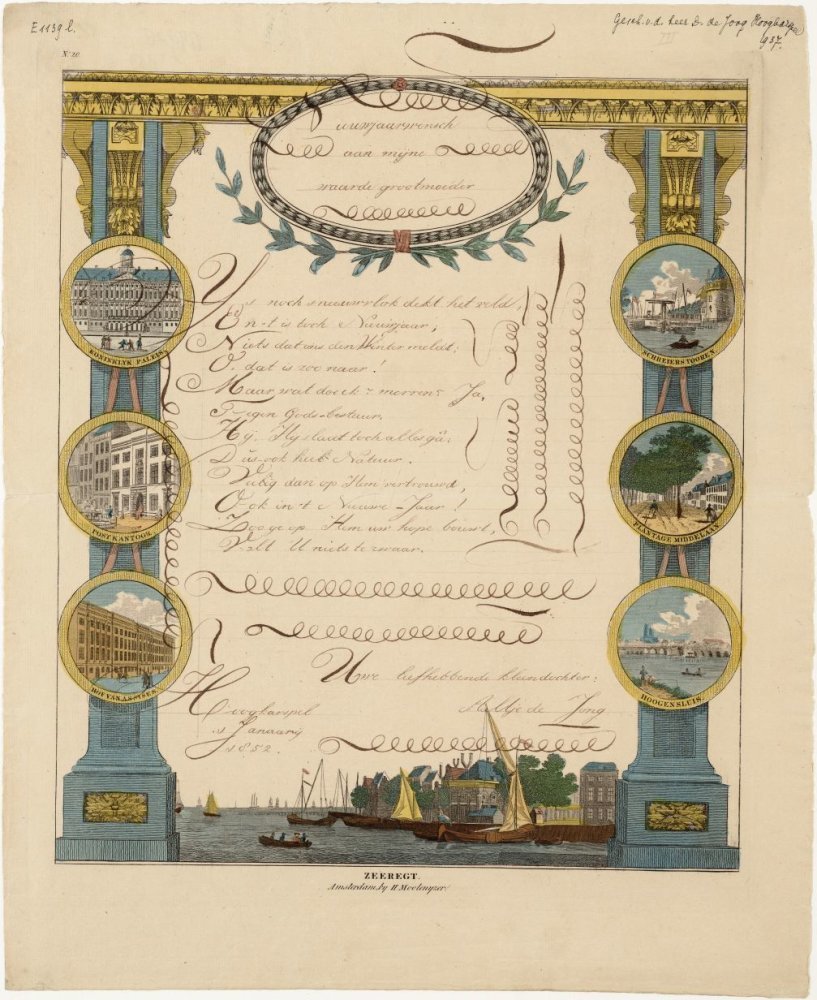 E1139 l.
Gesch. v. d. heer D. de Jong Hoogkarspel
1937.
N.º 20
Nieuwjaarwensch
aan mijne
waarde grootmoeder
noch sneeuwvlok dekt het veld,
En -t is toch Nieuwjaar,
Niets dat ons den Winter meldt;
O. dat is zoo naar.
Maar wat doe ik? morren? Ja,
Tegen Gods-bestuur,
Hij, Hij slaat toch alles gâ:
Dus ook hieb Natuur.
Veilig dan op Hem vertrouwd,
Ook in -t Nieuwe-Jaar!
Zoo ge op Hem uw hope bouwt,
Valt U niets te zwaar.
Uwe liefhebbende kleindochter:
Hoogkarspel
de Jong
1 Januarij
1852.
KONINKLYK PALEIS
SCHREIERS TOOREN
POST KANTOOR
PLANTAGE MIDDELAAN
HOOGENSLUIS
ZEEREGT.
Amsterdam, by H Moolenyzer